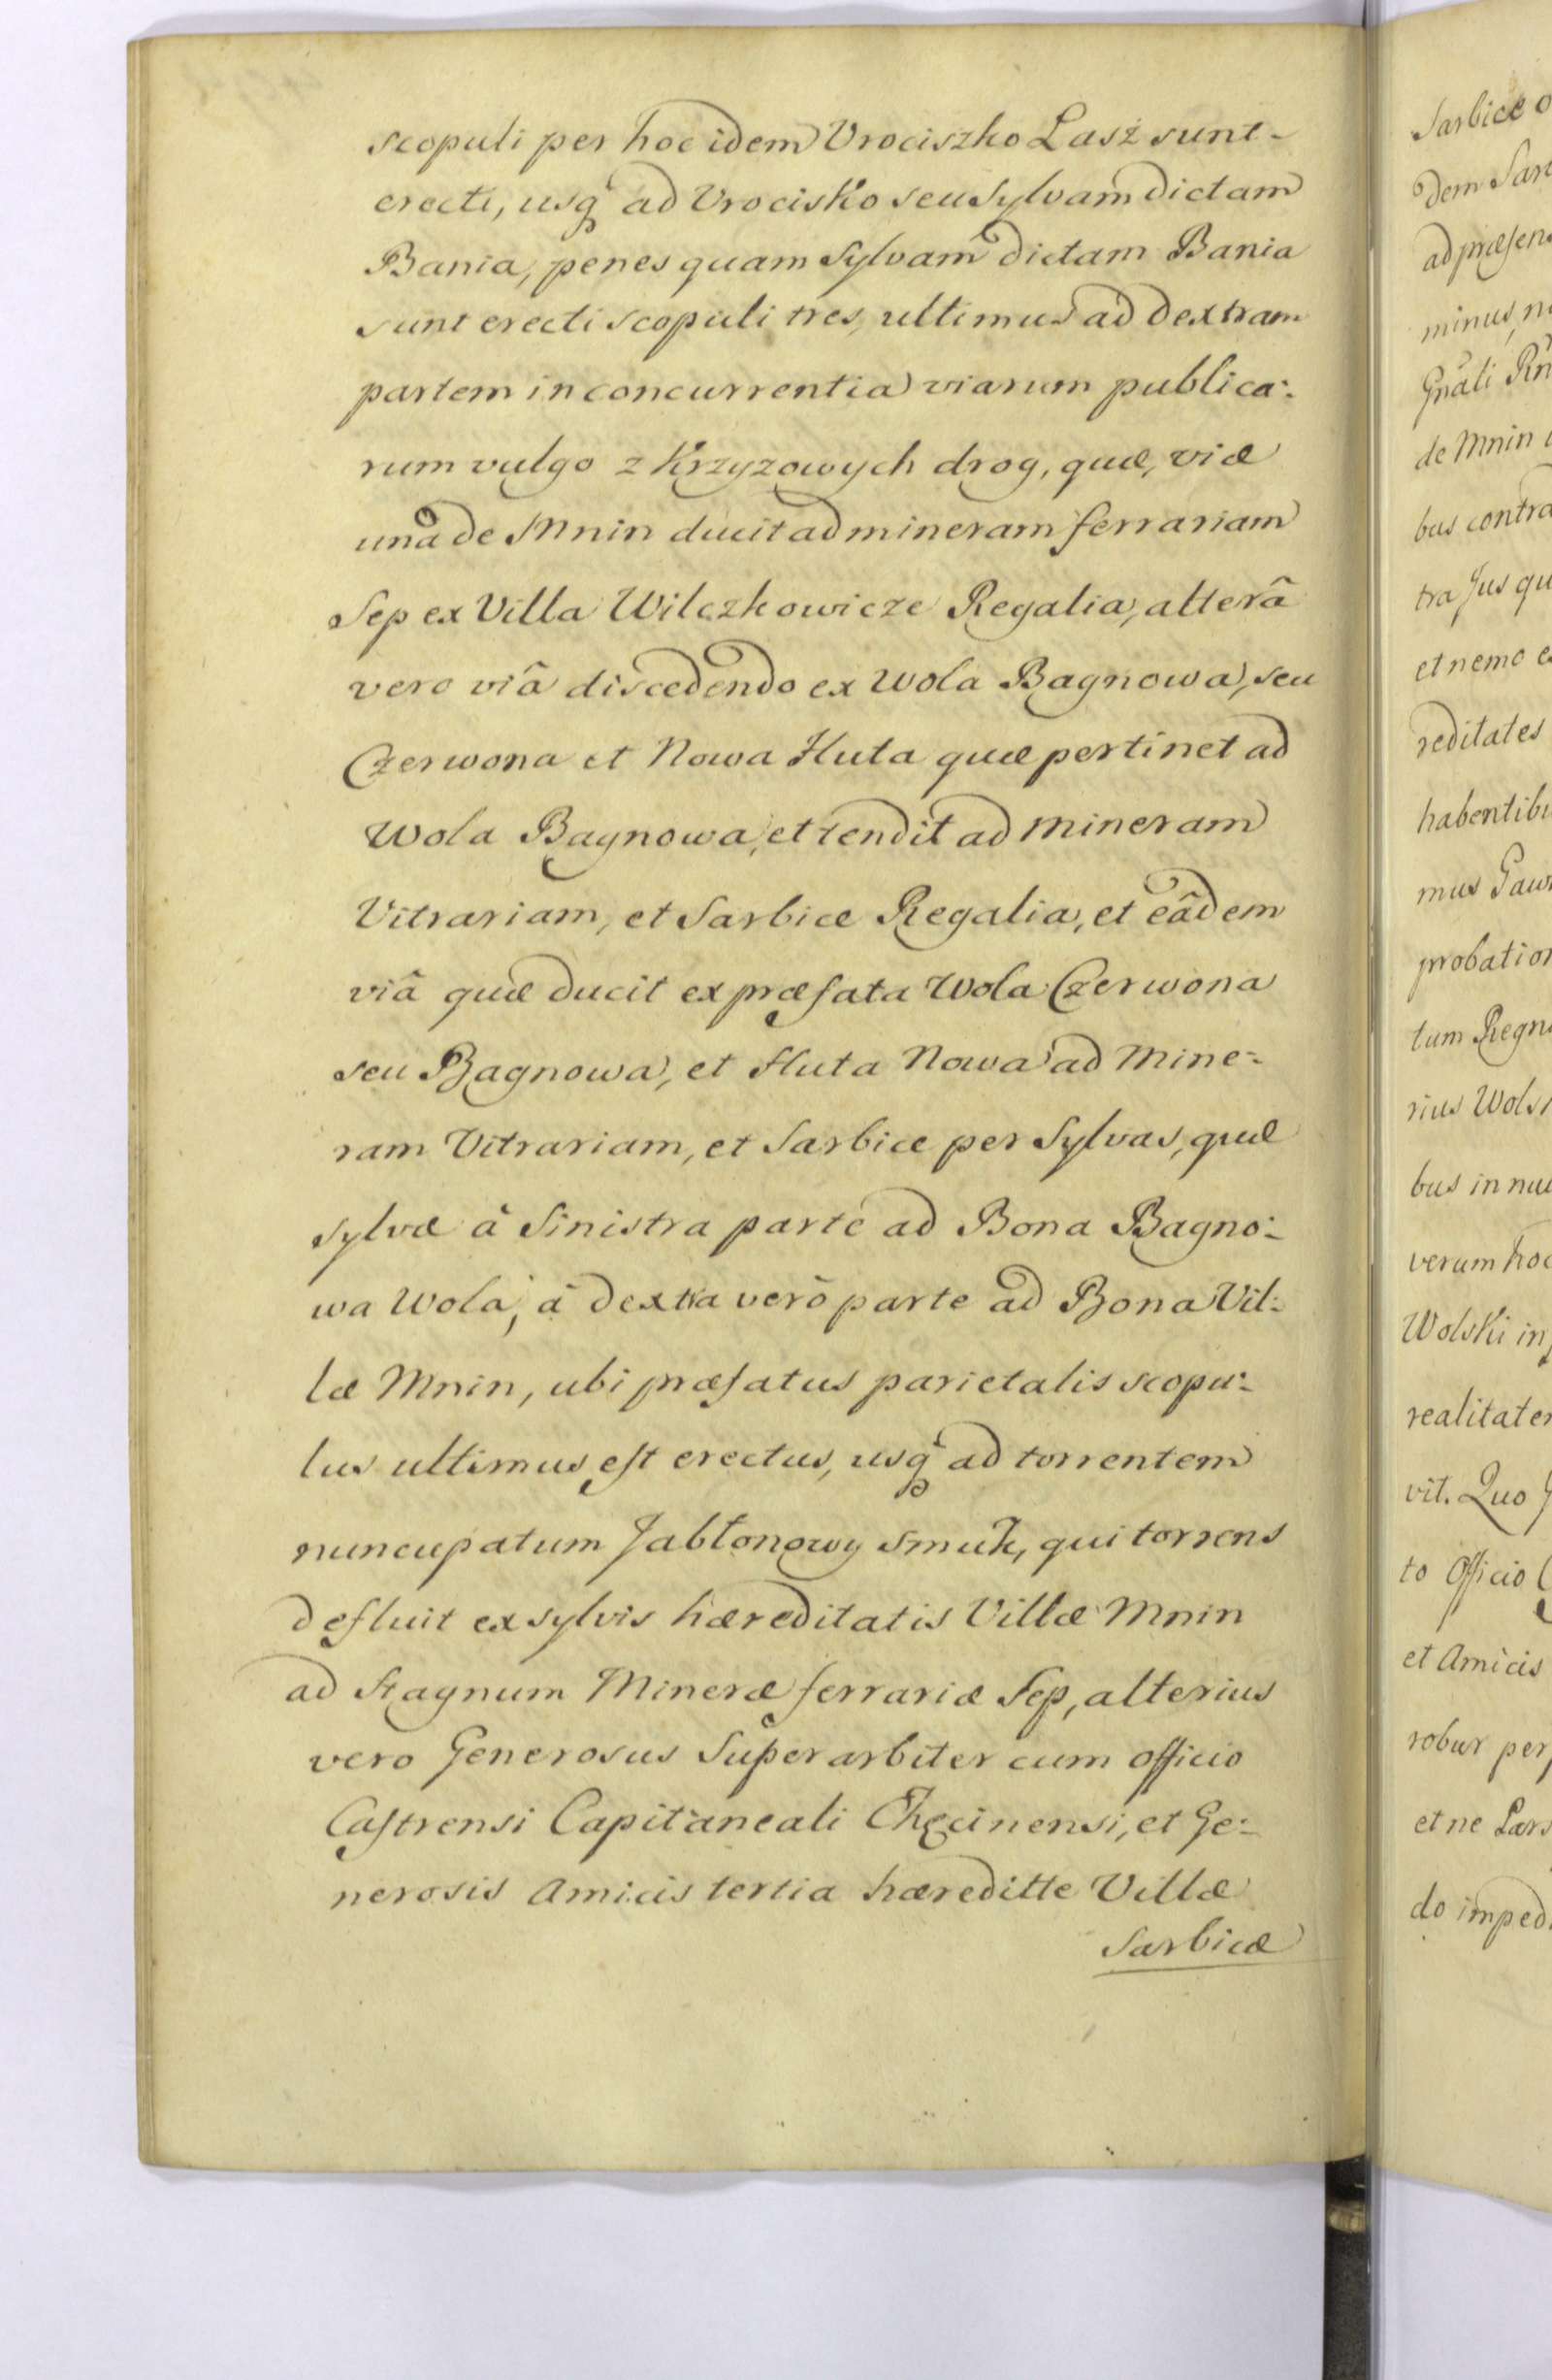 scopuli per hoc idem Vrociszko Lasź sunt-
erecti, usq́ ad Vrocisko seu Sylvam dictam
Bania, penes quam Sylvam dictam Bania
sunt erecti scopuli tres, ultimus ad dextram
partem in concurrentia viarum publica:
rum vulgo z Krzyzowych drog, quæ, viæ
una de Mnin ducit ad mineram ferrariam
Sep ex Villa Wilczkowicze Regalia, alterâ
vero viâ discedendo ex Wola Bagnowa, seu
Czerwona et Nowa Huta quæ pertinet ad
Wola Bagnowa, et tendit ad mineram
Vitrariam, et Sarbice Regalia, et eâdem
viâ quæ ducit ex præfata Wola Czerwona
seu Bagnowa, et Huta Nowa ad Mine:
ram Vitrariam, et Sarbice per Sylvas, quæ
sylvæ à Sinistra parte ad Bona Bagno:
wa Wola, à dextra verò parte ad Bona Vil:
læ Mnin, ubi præfatus parietalis scopu:
lus ultimus est erectus, usq́ ad torrentem
nuncupatum Jabłonowy Smuk, qui torrens
defluit ex sylvis hæreditatis Villæ Mnin
ad Stagnum Mineræ ferrariæ Sep, alterius
vero Generosus Superarbiter cum officio
Castrensi Capitaneali Chęcinensi, et Ge:
nerosis Amicis tertia hæreditte Villæ
Sarbicæ
Sarbice
dem
ad præsen
minus, n
Gnâli
de Mnin
bus contra
tra Jus qu
et nemo e
reditates
habentibu
mus Gaw
probation
tum Regn
rius Wols
bus in nu
verum hoc
Wolski in
realitate
vit. Quo
to Officio
et Amicis
robur per
et ne Pars
do imped